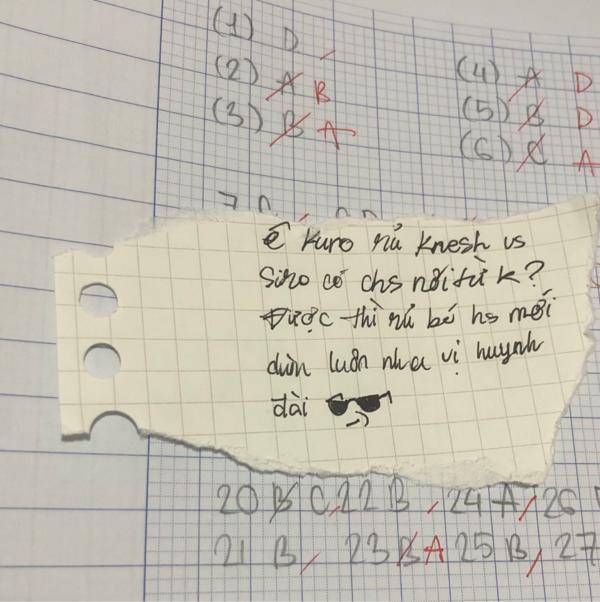 (1) D
(2) A B
(3) B A
(4) A D
(5) B D
(6) C A
ê Kuro rủ Knesh vs
Siro có chs nối từ k?
Được thì rủ bé hs mới
dùm luôn nha vị huynh
đài
20 B C, 22 B, 24 A, 26
21 B, 23 B A 25 B, 27